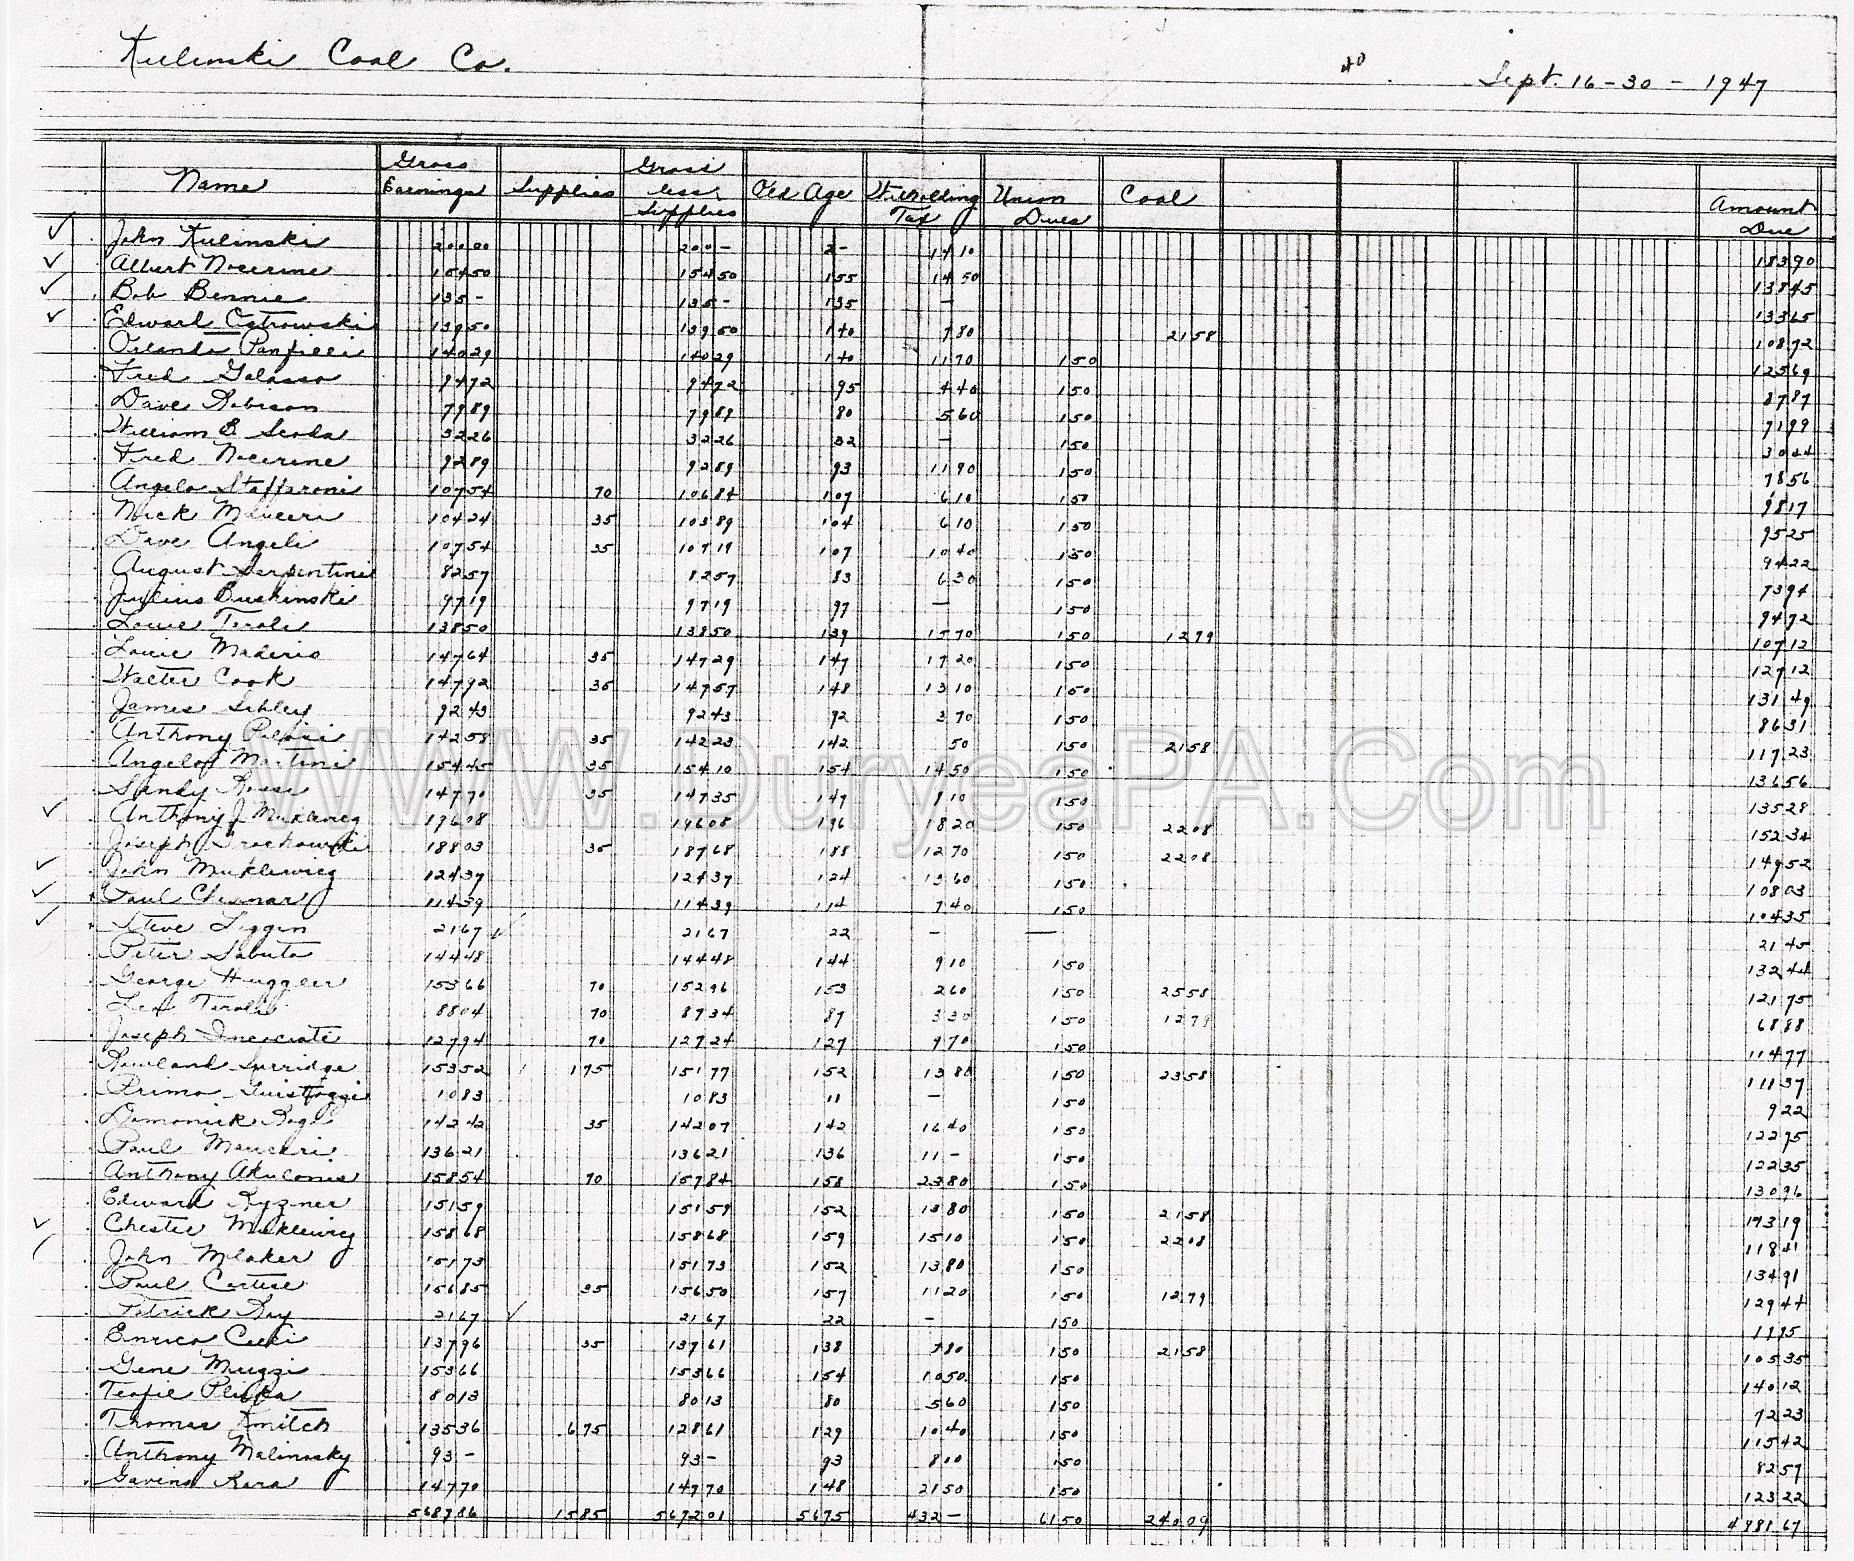 Kulinski Coal Co. 40 Sept. 16-30-1947
Name Gross Earnings Supplies Gross less Supplies Old Age Witholding Tax Union Dues Coal Amount Due
✓ John Kulinski 200 00 200 - 2 - 14 10 183 90
✓ Albert Nocerine 154 50 154 50 1 55 14 50 138 45
✓ Bob Bennie 135 - 135 - 1 35 - 133 65
✓ Edward Ostrowski 139 50 139 50 1 40 7 80 21 58 108 72
Orlando Panfilli 140 29 140 29 1 40 11 70 1 50 125 69
Fred Galasso 94 72 94 72 95 4 40 1 50 87 87
Dave Robeson 79 89 79 89 80 5 60 1 50 71 99
William B. Scoda 32 26 32 26 32 - 1 50 30 44
Fred Nocerine 92 89 92 89 93 11 90 1 50 78 56
Angelo Staffaroni 107 54 70 106 84 1 07 6 10 1 50 98 17
Nick Mliceri 104 24 35 103 89 1 04 6 10 1 50 95 25
Dave Angeli 107 54 35 107 19 1 07 10 40 1 50 94 22
August Serpentini 82 57 82 57 83 6 30 1 50 73 94
Julius Bushinski 97 19 97 19 97 - 1 50 94 72
Louie Teroli 138 50 138 50 1 39 15 70 1 50 12 79 107 12
Louie Maderio 147 64 35 147 29 1 47 17 20 1 50 127 12
Walter Cook 147 92 35 147 57 1 48 13 10 1 50 131 49
James Sibley 92 43 92 43 92 3 70 1 50 86 31
Anthony Pelosi 142 58 35 142 23 1 42 50 1 50 21 58 117 23
Angelo Martini 154 45 35 154 10 1 54 14 50 1 50 136 56
Spanky Rossi 147 70 35 147 35 1 47 9 10 1 50 135 28
✓ Anthony J. Muklewicz 196 08 196 08 1 96 18 20 1 50 22 08 152 34
Joseph Grochowski 188 03 35 187 68 1 88 12 70 1 50 22 08 149 52
✓ John Muklewicz 124 37 124 37 1 24 13 60 1 50 108 03
✓ Paul Chesnar 114 39 114 39 1 14 7 40 1 50 104 35
✓ Steve Liggin 21 67 ✓ 21 67 22 - - 21 45
Peter Sabuto 144 48 144 48 1 44 9 10 1 50 132 44
George Huggler 153 66 70 152 96 1 53 2 60 1 50 25 58 121 75
Leo Teroli 88 04 70 87 34 87 3 30 1 50 12 79 68 88
Joseph Inciciati 127 94 70 127 24 1 27 9 70 1 50 114 77
Rowland Surridge 153 52 1 75 151 77 1 52 13 80 1 50 23 58 111 37
Primo Guistoggi 10 83 10 83 11 - 1 50 9 22
Domonick Rogl 142 42 35 142 07 1 42 16 40 1 50 122 75
Paul Mauceri 136 21 136 21 1 36 11 - 1 50 122 35
Anthony Akulonis 158 54 70 157 84 1 58 23 80 1 50 130 96
Edward Kyzner 151 59 151 59 1 52 13 80 1 50 21 58 113 19
✓ Chester Muklewicz 158 68 158 68 1 59 15 10 1 50 22 08 118 41
John Mlaker 151 73 151 73 1 52 13 80 1 50 134 91
Paul Cortese 156 85 35 156 50 1 57 11 20 1 50 12 79 129 44
Patrick Ray 21 67 ✓ 21 67 22 - 1 50 19 95
Enrico Cecci 137 96 35 137 61 1 38 7 80 1 50 21 58 105 35
Gene Muzzi 153 66 153 66 1 54 10 50 1 50 140 12
Teofil Plufka 80 13 80 13 80 5 60 1 50 72 23
Thomas Kmitch 135 36 6 75 128 61 1 29 10 40 1 50 115 42
Anthony Malinosky 93 - 93 - 93 8 10 1 50 82 57
Gaveno Kara 147 70 147 70 1 48 21 50 1 50 123 22
5687 86 15 85 5672 01 56 75 432 - 61 50 240 09 4881 67
WWW.DuryeaPA.Com